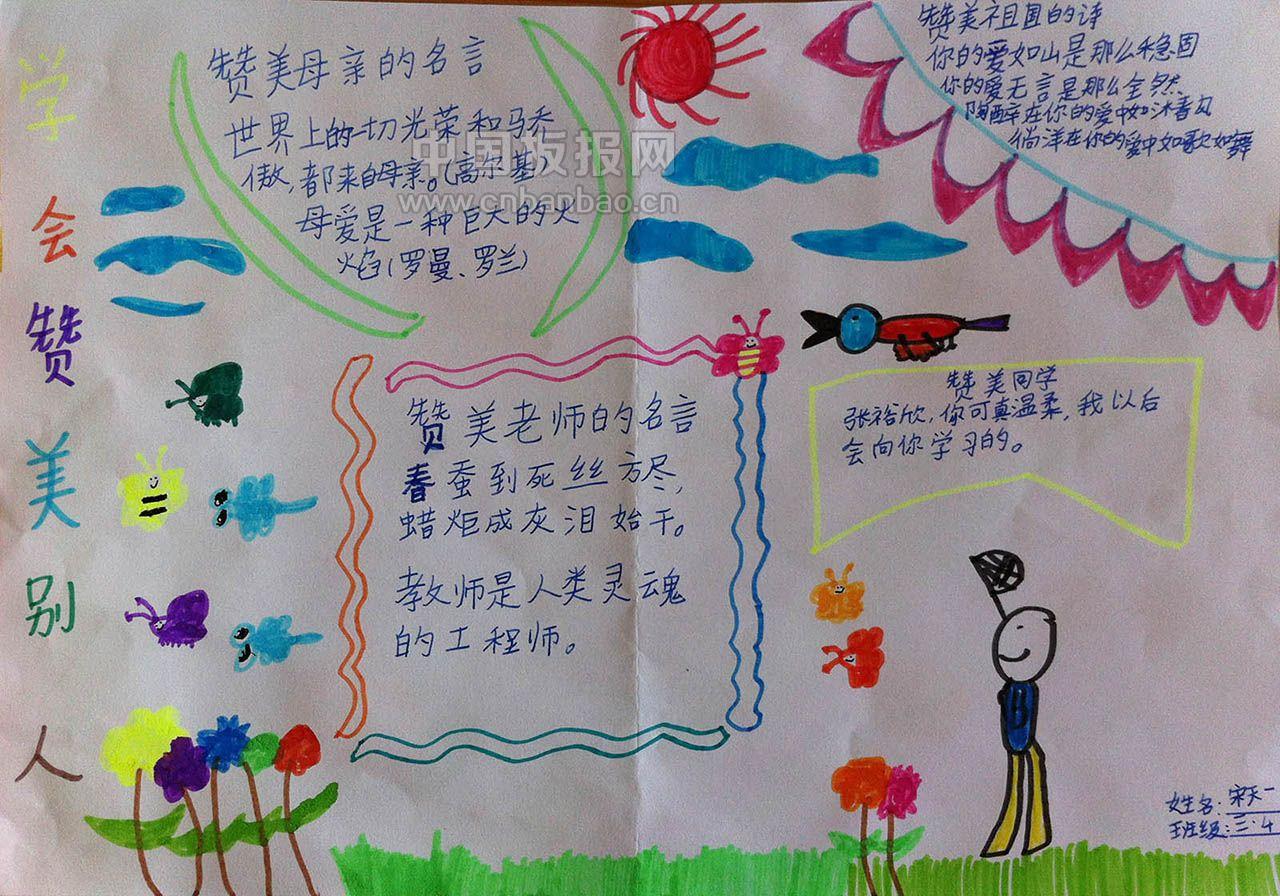 学会赞美别人
赞美母亲的名言
世界上的一切光荣和骄
傲,都来自母亲。(高尔基)
母爱是一种巨大的火
火焰(罗曼、罗兰)
中国板报网
www.cnbanbao.cn
赞美祖国的诗
你的爱如山是那么稳固
你的爱无言是那么全然
陶醉在你的爱中如沐春风
徜洋在你的爱中如歌如舞
赞美老师的名言
春蚕到死丝方尽,
蜡炬成灰泪始干。
教师是人类灵魂
的工程师。
赞美同学
张裕欣,你可真温柔,我以后
会向你学习的。
姓名:宋天一
班级:三·4